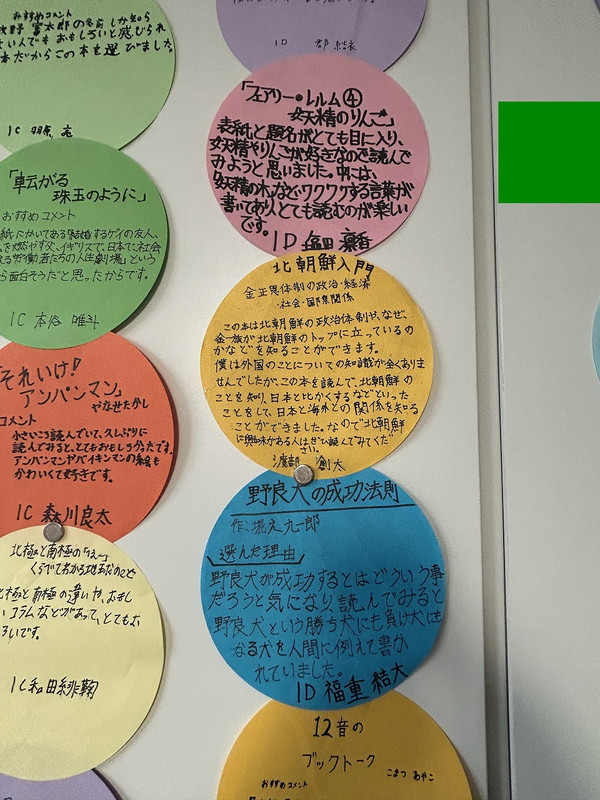 おすすめコメント
富太郎の名前しか知ら
ない人でもおもしろいと感じられ
本だからこの本を選びました。
1C
「転がる
珠玉のように」
おすすめコメント
紙にかいてある
を燃やす父、イギリスで、日本で、社会
労働者たちの人生劇場」という
ら面白そうだと思ったからです。
1C
「それいけ!
アンパンマン」
やなせたかし
コメント
小さいころ読んでいて、久しぶりに
読んでみると、とてもおもしろかったです。
アンパンマンやバイキンマンの絵も
かわいくて好きです。
1C 森川良太
北極と南極の
くらべてわかる
北極と南極の違いや、おもし
いコラムなどがあって、とてもお
ろいです。
1C 和田緋鞠
1D 郡 結衣
「フェアリー・レルム④
妖精のりんご」
表紙と題名がとても目に入り、
妖精やりんごが好きなので読んで
みようと思いました。中には、
「妖精の木」などワクワクする言葉が
書いてありとても読むのが楽しい
です。
1D
北朝鮮入門
金正恩体制の政治・経済
・社会・国際関係
この本は北朝鮮の政治体制や、なぜ、
金一族が北朝鮮のトップに立っているの
かなどを知ることができます。
僕は外国のことについての知識が全くありま
せんでしたが、この本を読んで、北朝鮮の
ことを知り、日本と比かくするなどといった
ことをして、日本と海外との関係を知る
ことができました。なので北朝鮮
に興味がある人はぜひ読んでみてくだ
さい。
渡部 創太
野良犬の成功法則
作:堀之九一郎
選んだ理由
野良犬が成功するとはどういう事
だろうと気になり、読んでみると
野良犬という勝ち犬にも負け犬にも
なる犬を人間に例えて書か
れていました。
1D 福重 結大
12音の
ブックトーク
こまつ あやこ
おすすめコメント